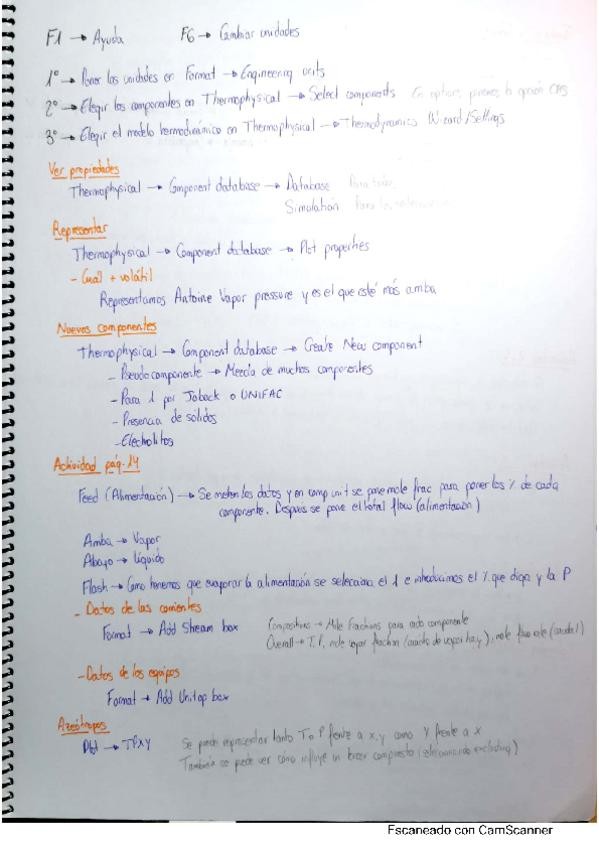 F1 → Ayuda F6 → Cambiar unidades
1º → Poner las unidades en Format → Engineering units
2º → Elegir los componentes en Thermophysical → Select components En options, ponemos la opción CAS
3º → Elegir el modelo termodinámico en Thermophysical → Thermodynamics Wizard/Settings
Ver propiedades
Thermophysical → Component database → Database Para todos
Simulation Para los
Representar
Thermophysical → Component database → Plot properties
- Cual + volátil
Representamos Antoine Vapor pressure y es el que esté más arriba
Nuevos componentes
Thermophysical → Component database → Create New component
- Pseudocomponente → Mezcla de muchos componentes
- Para 1 por Joback o UNIFAC
- Presencia de sólidos
- Electrolitos
Actividad pág. 14
Feed (Alimentación) → Se meten los datos y en comp unit se pone mole frac para poner los % de cada
componente. Despues se pone el total flow (alimentación)
Arriba → Vapor
Abajo → Líquido
Flash → Como tenemos que evaporar la alimentación se selecciona el 1 e introducimos el % que diga y la P
- Datos de las corrientes
Format → Add Stream box Compositions → Mole fractions para cada componente
Overall → T, P, mole vapor fraction (cuánto de vapor hay), mole flow rate (caudal)
- Datos de los equipos
Format → Add Unitop box
Azeótropos
Plot → TPXY Se puede representar tanto T o P frente a x,y como Y frente a x
También se puede ver cómo influye un tercer compuesto (seleccionando excluding)
Escaneado con CamScanner